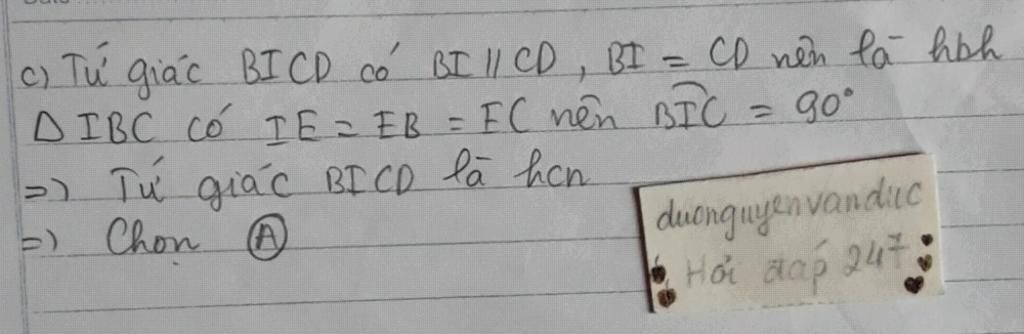 c) Tứ giác BICD có BI // CD, BI = CD nên là hbh
Δ IBC có IE = EB = EC nên BIC = 90°
=> Tứ giác BICD là hcn
=> Chọn A
duonguyenvanduc
Hỏi đáp 247